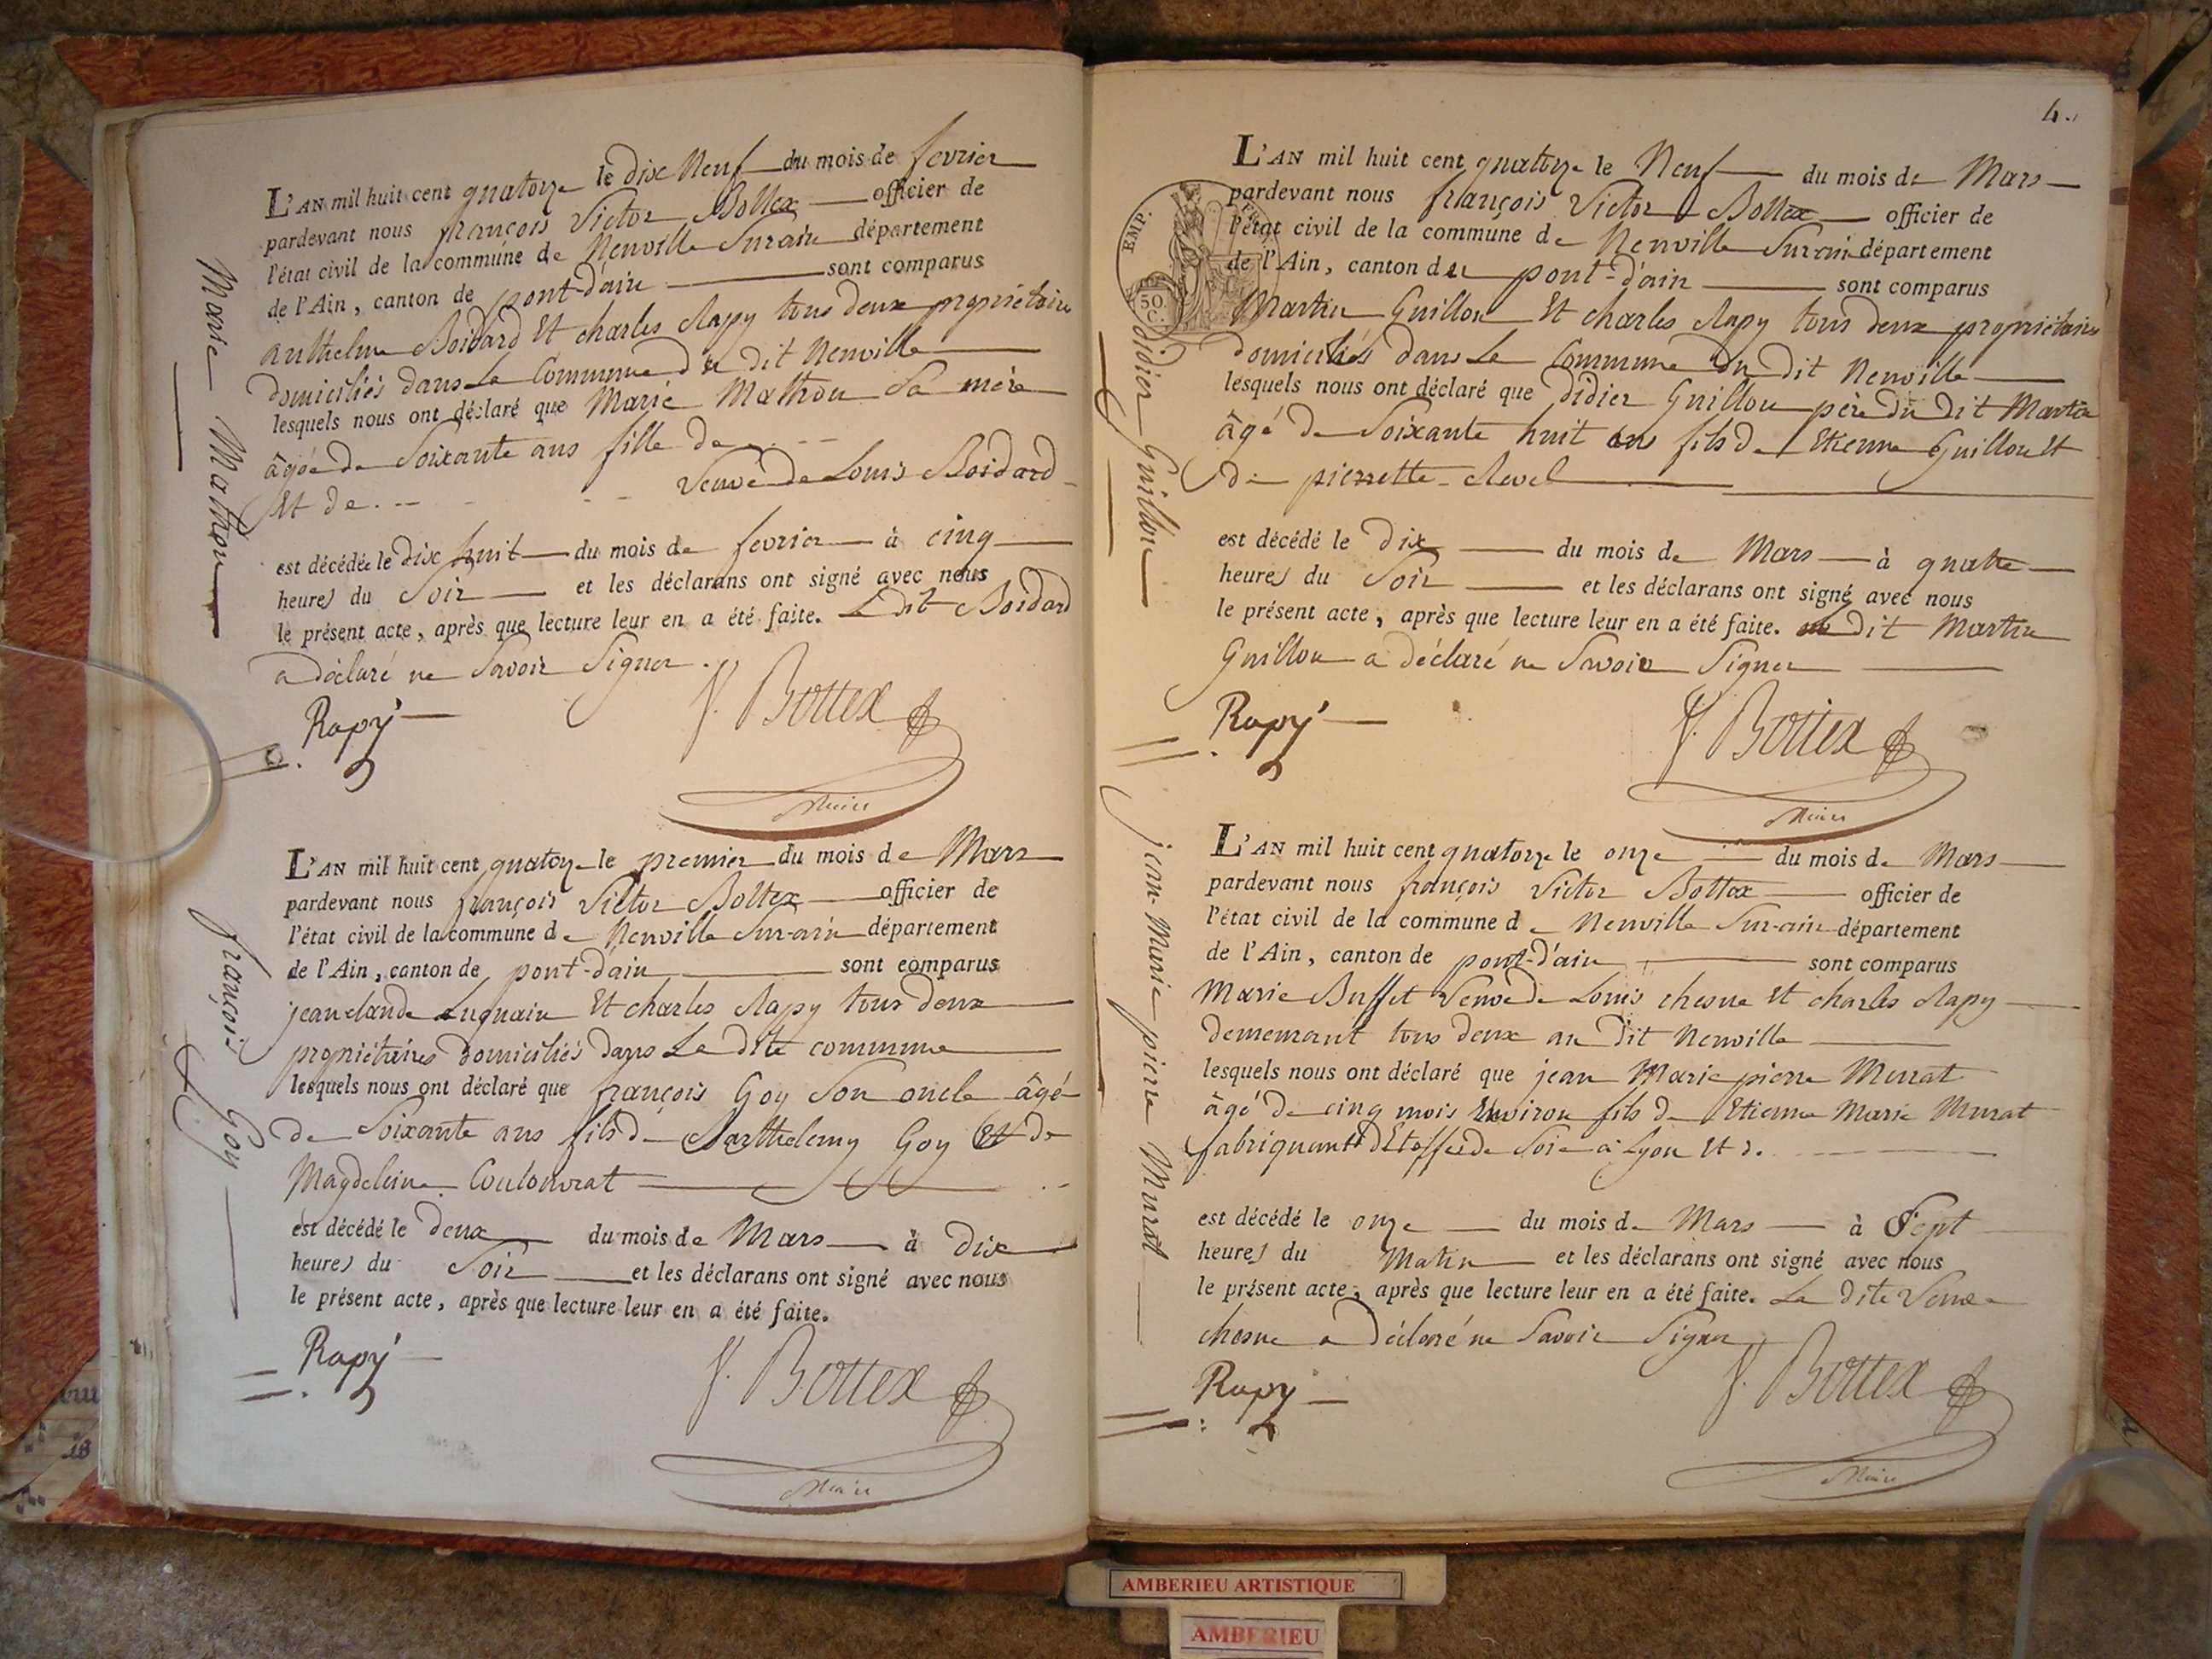 Marie Mathon
L'AN mil huit cent quatorze le dix Neuf du mois de fevrier
pardevant nous françois Victor Bottex officier de
l'état civil de la commune de Neuville Sur ain département
de l'Ain, canton de pont-d'ain sont comparus
anthelme Boidard Et charles Rapy tous deux propriétaires
domiciliés dans La Commune du dit Neuville
lesquels nous ont déclaré que Marie Mathon Sa mère
âgée de Soixante ans fille de
Et de Veuve de Louis Boidard
est décédée le dix huit du mois de fevrier à cinq
heures du Soir et les déclarans ont signé avec nous
le présent acte, après que lecture leur en a été faite. Le dit Boidard
a déclaré ne Savoir Signer.
Rapy V. Bottex
Maire
françois Goy
L'AN mil huit cent quatorze le premier du mois de Mars
pardevant nous françois Victor Bottex officier de
l'état civil de la commune de Neuville Sur-ain département
de l'Ain, canton de pont-d'ain sont comparus
jean claude Luquain Et charles Rapy tous deux
propriétaires domiciliés dans La dite commune
lesquels nous ont déclaré que françois Goy Son oncle âgé
de Soixante ans fils de Barthelemy Goy Et de
Magdeleine Coulonvrat
est décédé le deux du mois de Mars à dix
heures du Soir et les déclarans ont signé avec nous
le présent acte, après que lecture leur en a été faite.
Rapy V. Bottex
Maire
4.
EMP. FR.
50 C.
didier Guillon
L'AN mil huit cent quatorze le Neuf du mois de Mars
pardevant nous françois Victor Bottex officier de
l'état civil de la commune de Neuville Sur ain département
de l'Ain, canton du pont-d'ain sont comparus
Martin Guillon Et charles Rapy tous deux propriétaires
domiciliés dans Le Commune du dit Neuville
lesquels nous ont déclaré que Didier Guillon père du dit Martin
âgé de Soixante huit ans fils de Etienne Guillon Et
de pierrette Revel
est décédé le dix du mois de Mars à quatre
heures du Soir et les déclarans ont signé avec nous
le présent acte, après que lecture leur en a été faite. dit Martin
Guillon a déclaré ne Savoir Signer
Rapy V. Bottex
Maire
jean Marie pierre Murat
L'AN mil huit cent quatorze le onze du mois de Mars
pardevant nous françois Victor Bottex officier de
l'état civil de la commune de Neuville Sur-ain département
de l'Ain, canton de pont-d'ain sont comparus
Marie Buffet Veuve de Louis chesne Et charles Rapy
demeurant tous deux au dit Neuville
lesquels nous ont déclaré que jean Marie pierre Murat
âgé de cinq mois Environ fils de Etienne Marie Murat
fabriquant d'Etoffes de Soie à Lyon Et de
est décédé le onze du mois de Mars à Sept
heures du Matin et les déclarans ont signé avec nous
le présent acte, après que lecture leur en a été faite. La dite Veuve
chesne a déclaré ne Savoir Signer
Rapy V. Bottex
Maire
AMBERIEU ARTISTIQUE
AMBERIEU